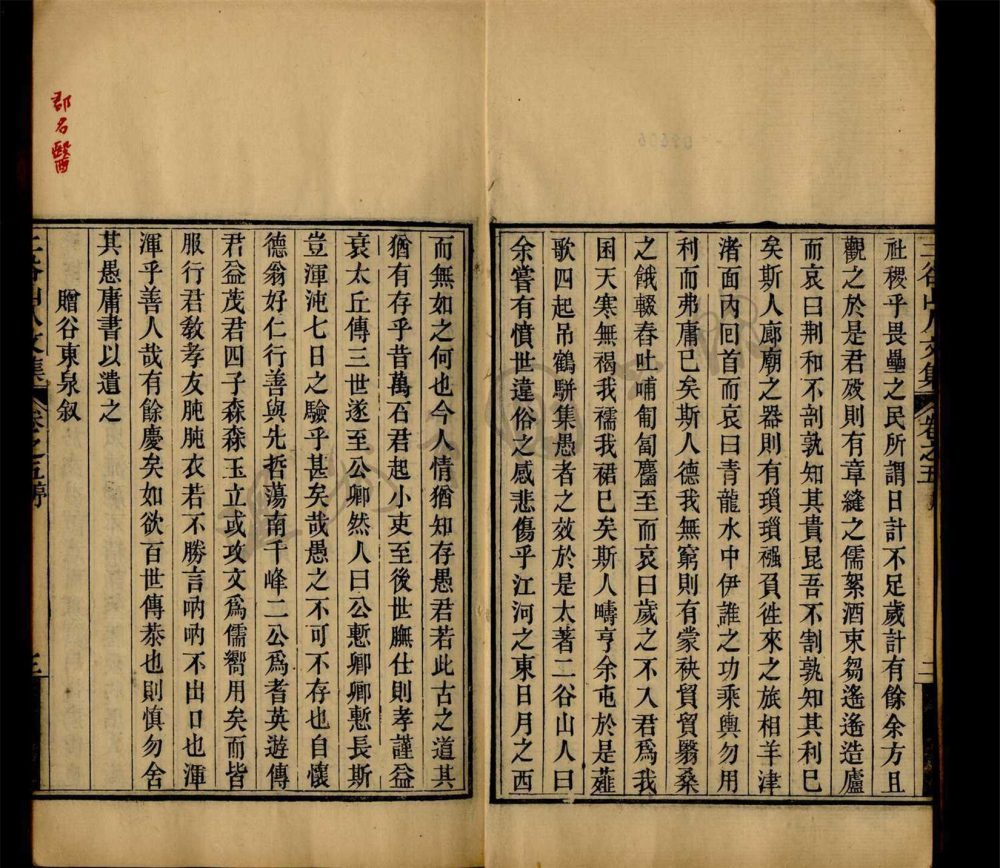 社稷乎畏壘之民所謂日計不足歲計有餘余方且
觀之於是君歿則有章縫之儒絮酒束芻遙遙造廬
而哀曰荆和不剖孰知其貴昆吾不割孰知其利已
矣斯人廊廟之器則有瑣瑣襁負徃來之旅相羊津
渚面內回首而哀曰青龍水中伊誰之功乘輿勿用
利而弗庸已矣斯人德我無窮則有蒙袂貿貿翳桑
之餓輟舂吐哺匍匐麕至而哀曰歲之不入君爲我
囷天寒無褐我襦我裙已矣斯人疇亨余屯於是薤
歌四起吊鶴駢集愚者之效於是太著二谷山人曰
余嘗有憤世違俗之感悲傷乎江河之東日月之西
而無如之何也今人情猶知存愚君若此古之道其
猶有存乎昔萬石君起小吏至後世膴仕則孝謹益
衰太丘傳三世遂至公卿然人曰公慙卿卿慙長斯
豈渾沌七日之驗乎甚矣哉愚之不可不存也自懷
德翁好仁行善與先哲蕩南千峰二公爲耆英遊傳
君益茂君四子森森玉立或攻文爲儒嚮用矣而皆
服行君敎孝友肫肫衣若不勝言吶吶不出口也渾
渾乎善人哉有餘慶矣如欲百世傳恭也則慎勿舍
其愚庸書以遺之
贈谷東泉叙
二谷山人文集
卷之五
三
郡名醫